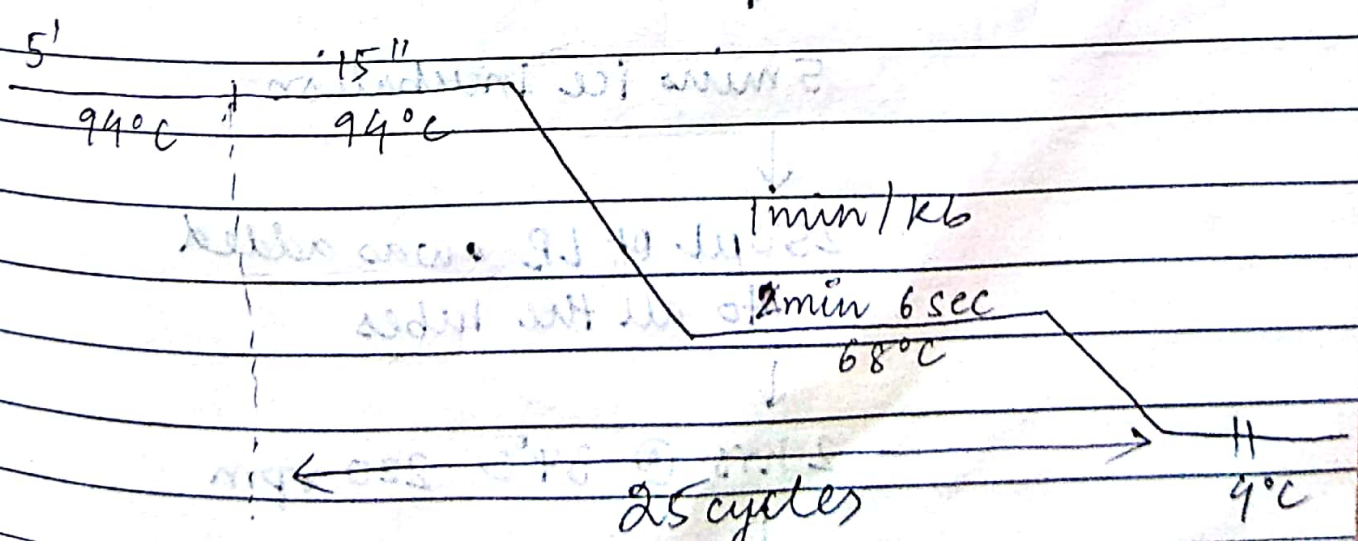 5' 15"
94°C 94°C
1min/kb
2min 6sec
68°C
25 cycles
4°C